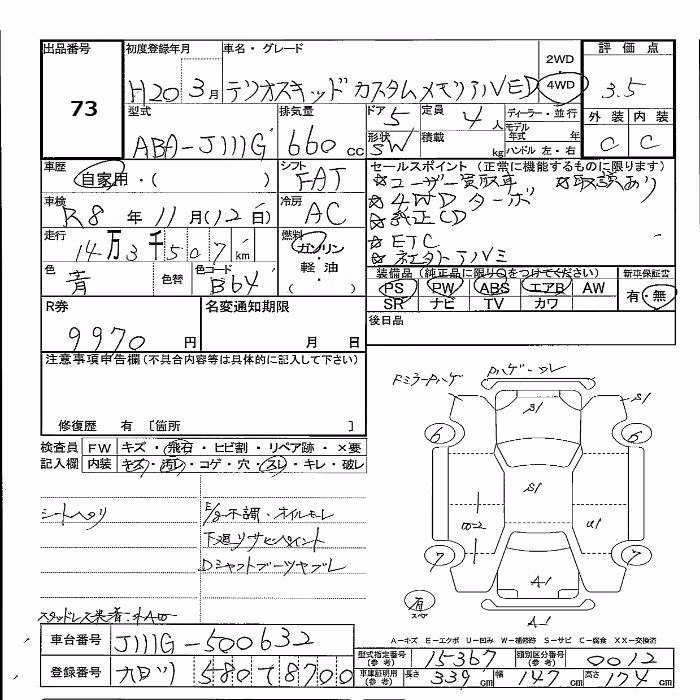 出品番号 初度登録年月 車名・グレード 2WD 評価点
73 H20 3月 テリオスキッド カスタムメモリアルED 4WD 3.5
型式 排気量 ドア 5 定員 4人 ディーラー・並行 外装 内装
ABA-J111G 660cc 形状 SW 積載 kg モデル年式 年 C C
ハンドル 左・右
車歴 シフト セールスポイント (正常に機能するものに限ります)
自家用・( ) FAT ☆ユーザー買取車 ☆取説あり
車検 冷房 ☆4WD ターボ
R8年11月(12日) AC ☆純正CD
走行 燃料 ☆ETC
14万3千507km ガソリン・軽油 ☆社外アルミ
色 色替 色コード 装備品 (純正品に限り○をつけてください) 新車保証書
青 B64 PS PW ABS エアB AW 有・無
SR ナビ TV カワ
R券 名変通知期限 後日品
9970円 月 日
注意事項申告欄 (不具合内容等は具体的に記入して下さい)
修復歴 有 〔箇所 〕
検査員 FW キズ・飛石・ヒビ割・リペア跡・×要
記入欄 内装 キズ・汚レ・コゲ・穴・スレ・キレ・破レ
RミラーPハゲ Pハゲ・ワレ
S1
6 6
S1
W-2 U1
7 7
A-1
有 スペア
A-1
シートヘタリ E/g不調・オイルモレ
下廻りサビペイント
Dシャフトブーツヤブレ
スタッドレス装着・外AW
A－キズ E－エクボ U－凹み W－補修跡 S－サビ C－腐食 XX－交換済
車台番号 J111G-500632 型式指定番号(参考) 15367 類別区分番号(参考) 0012
登録番号 580 て 8700 車庫証明用(参考) 長さ 339cm 幅 147cm 高さ 174cm